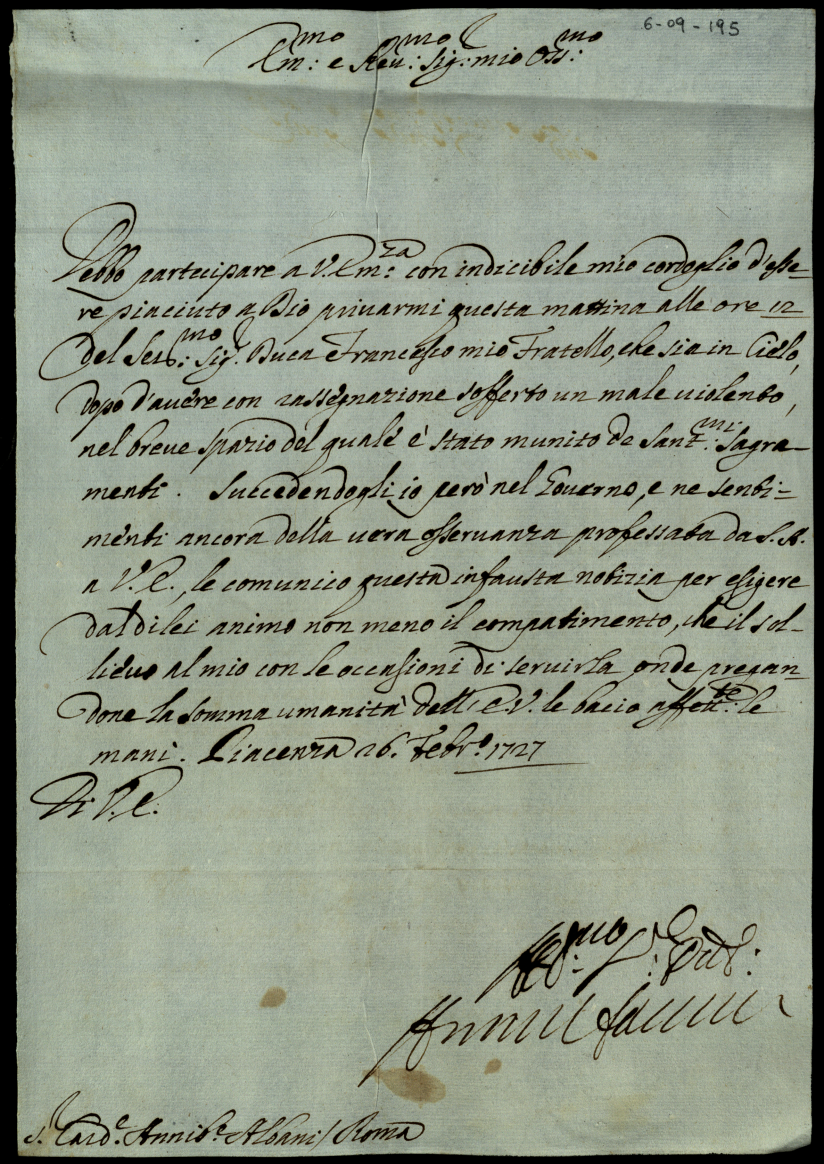 6-09-195
Em:mo e Reu:mo Sig:r mio Oss:mo
Debbo partecipare a V. Em:za con indicibile mio cordoglio d'esse-
re piaciuto a Dio priuarmi questa mattina alle ore 12
del Ser:mo Sig.r Duca Francesco mio Fratello, che sia in Cielo,
dopo d'auere con rassegnazione sofferto un male uiolento,
nel breue spazio del quale è stato munito de Sant:mi Sagra-
menti. Succedendogli io però nel Gouerno, e ne senti-
menti ancora della uera osseruanza professata da S. A.
a V. E., le comunico questa infausta notizia per esigere
dal di lei animo non meno il compatimento, che il sol-
lieuo al mio con le occasioni di seruirla onde pregan-
done la somma umanità dell' E. V. le bacio affett:te le
mani. Piacenza 26. Febr.o 1727
Di V. E.
Aff:mo
S.r Card.e Annib.e Albani / Roma